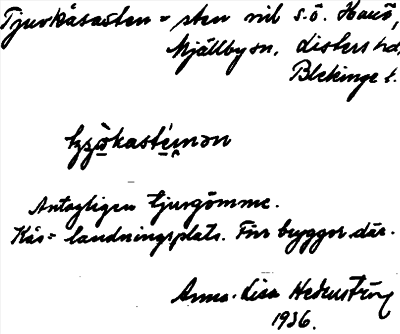 Tjurkåsasten = sten vid s.ö. Hanö,
Mjällby sn, Listers hd,
Blekinge l.
Antagligen tjurgömme.
Kås = landningsplats. Förr bryggor där.
Anna-Lisa Hedenström
1936.